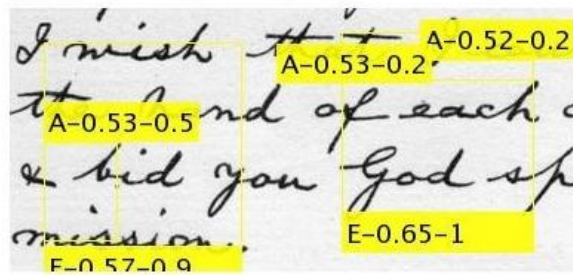 I wish that
A-0.52-0.2
A-0.53-0.2
hand of each
A-0.53-0.5
& bid you God
mission.
E-0.65-1
E-0.57-0.9